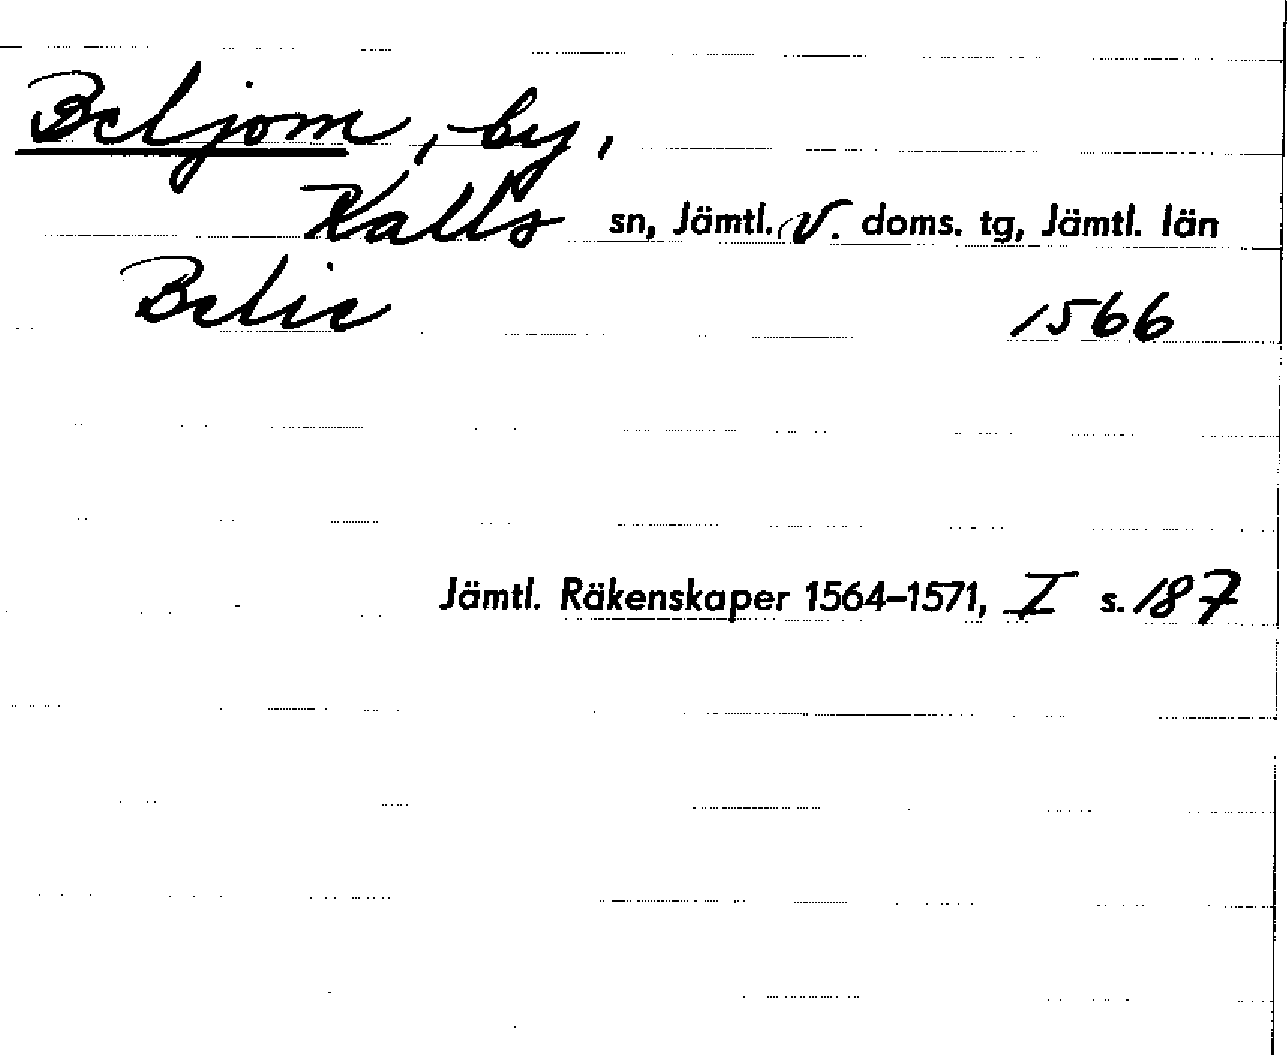 Beljom, by,
Kalls sn, Jämtl. V. doms. tg, Jämtl. län
Belie 1566
Jämtl. Räkenskaper 1564-1571, I s. 187